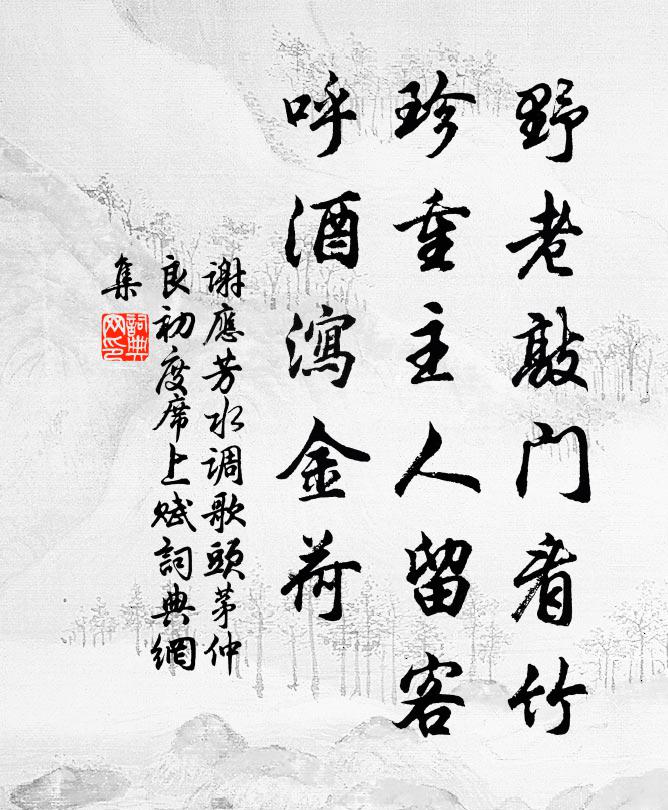 野老敲门看竹
珍重主人留客
呼酒瀉金荷
谢應芳水调歌頭茅仲
良初度席上赋詞典網
集
詞典网印